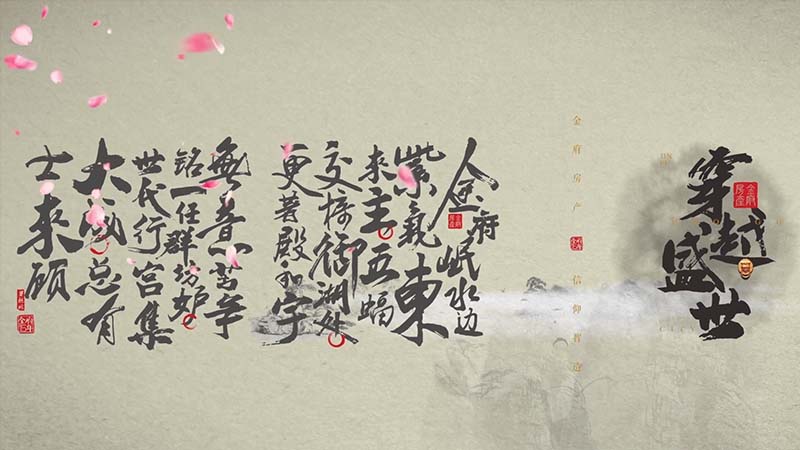 穿越盛世
金府
房產
金府房产
信仰智造
金府岷水边
紫氣東
来主五蝠
交椅御湖处
更著殿和宇
無意苦争
铭一任群芳妒
世代行宫集
大成总有
士来顾